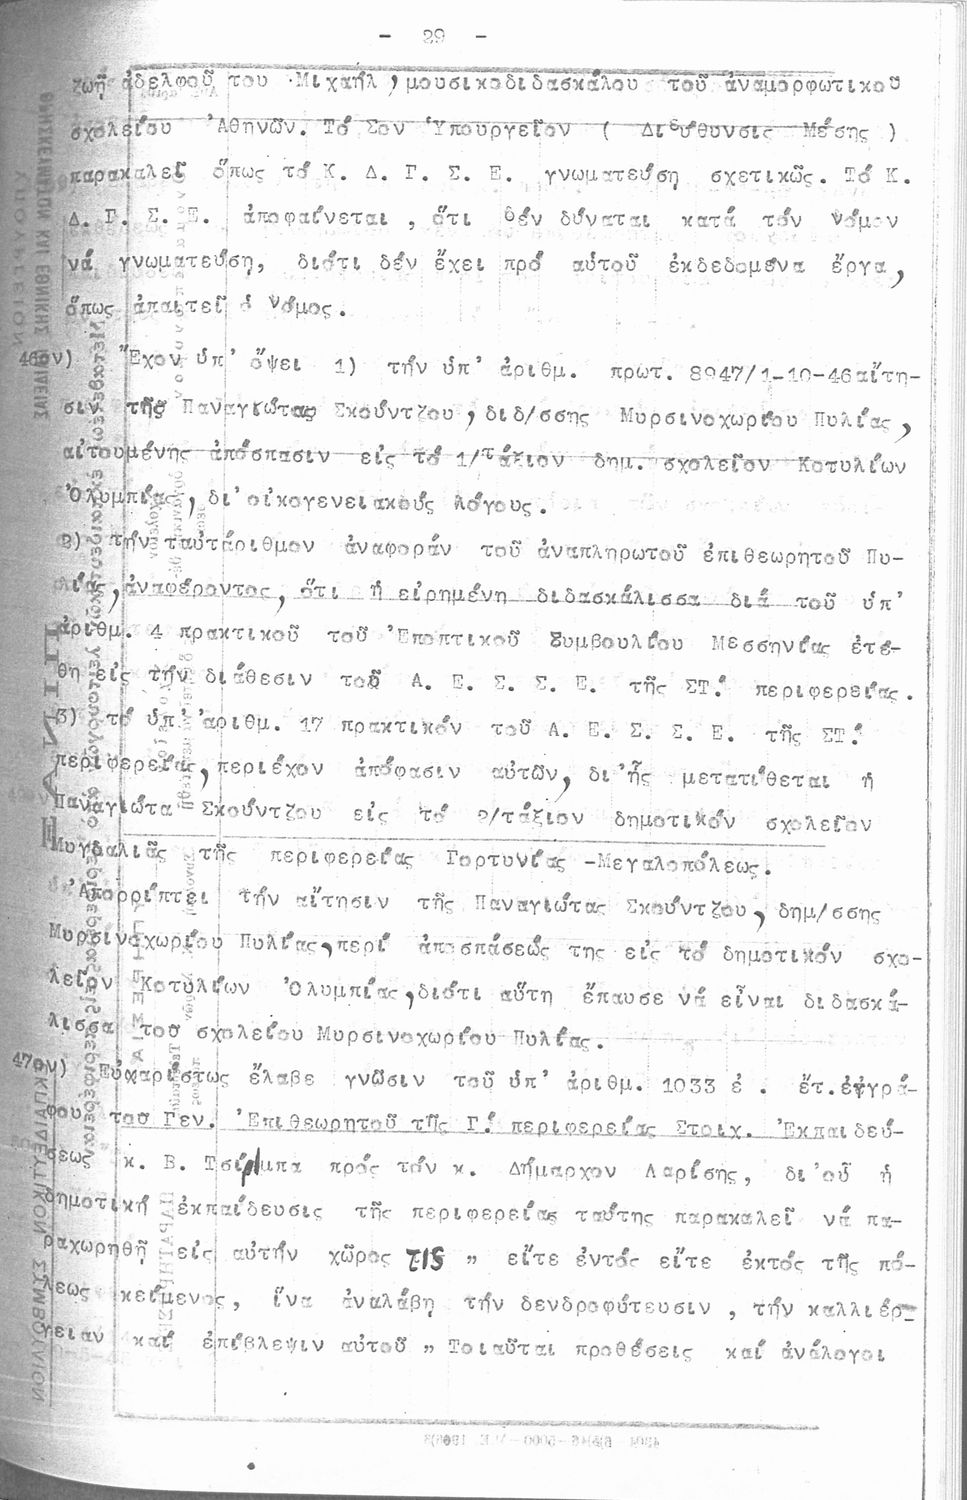 - 29 -
ζωῇ ἀδελφοῦ του Μιχαήλ, μουσικοδιδασκάλου τοῦ ἀναμορφωτικοῦ
σχολείου Ἀθηνῶν. Τό Σον Ὑπουργεῖον ( Διεύθυνσις Μέσης )
παρακαλεῖ ὅπως τό Κ. Δ. Γ. Σ. Ε. γνωματεύσῃ σχετικῶς. Τό Κ.
Δ. Γ. Σ. Ε. ἀποφαίνεται , ὅτι δέν δύναται κατά τόν νόμον
νά γνωματεύσῃ, διότι δέν ἔχει πρό αὐτοῦ ἐκδεδομένα ἔργα,
ὅπως ἀπαιτεῖ ὁ νόμος.
46ον) Ἔχον ὑπ' ὄψει 1) τήν ὑπ' ἀριθμ. πρωτ. 8947/1-10-46 αἴτη-
σιν τῆς Παναγιώτας Σκούντζου, διδ/σσης Μυρσινοχωρίου Πυλίας,
αἰτουμένης ἀπόσπασιν εἰς τό 1/τάξιον δημ. σχολεῖον Κοτυλίων
Ὀλυμπίας, δι' οἰκογενειακούς λόγους.
2) τήν ταὐτάριθμον ἀναφοράν τοῦ ἀναπληρωτοῦ ἐπιθεωρητοῦ Πυ-
λίας, ἀναφέροντος, ὅτι ἡ εἰρημένη διδασκάλισσα διά τοῦ ὑπ'
ἀριθμ. 4 πρακτικοῦ τοῦ Ἐποπτικοῦ Συμβουλίου Μεσσηνίας ἐτέ-
θη εἰς τήν διάθεσιν τοῦ Α. Ε. Σ. Σ. Ε. τῆς ΣΤ.' περιφερείας.
3) τό ὑπ' ἀριθμ. 17 πρακτικόν τοῦ Α. Ε. Σ. Σ. Ε. τῆς ΣΤ.'
περιφερείας, περιέχον ἀπόφασιν αὐτῶν, δι' ἧς μετατίθεται ἡ
Παναγιώτα Σκούντζου εἰς τό 2/τάξιον δημοτικόν σχολεῖον
Μυγδαλιᾶς τῆς περιφερείας Γορτυνίας -Μεγαλοπόλεως.
Ἀπορρίπτει τήν αἴτησιν τῆς Παναγιώτας Σκούντζου, δημ/σσης
Μυρσινοχωρίου Πυλίας, περί ἀποσπάσεώς της εἰς τό δημοτικόν σχο-
λεῖον Κοτυλίων Ὀλυμπίας, διότι αὕτη ἔπαυσε νά εἶναι διδασκά-
λισσα τοῦ σχολείου Μυρσινοχωρίου Πυλίας.
47ον) Εὐχαρίστως ἔλαβε γνῶσιν τοῦ ὑπ' ἀριθμ. 1033 ἐ . ἔτ. ἐγγρά-
φου του Γεν. Ἐπιθεωρητοῦ τῆς Γ.' περιφερείας Στοιχ. Ἐκπαιδεύ-
σεως κ. Β. Τσίριμπα πρός τόν κ. Δήμαρχον Λαρίσης, δι' οὗ ἡ
δημοτική ἐκπαίδευσις τῆς περιφερείας ταύτης παρακαλεῖ νά πα-
ραχωρηθῇ εἰς αὐτήν χῶρος τις " εἴτε ἐντός εἴτε ἐκτός τῆς πό-
λεως κείμενος, ἵνα ἀναλάβῃ τήν δενδροφύτευσιν , τήν καλλιέρ-
γειαν καί ἐπίβλεψιν αὐτοῦ " Τοιαῦται προθέσεις καί ἀνάλογοι